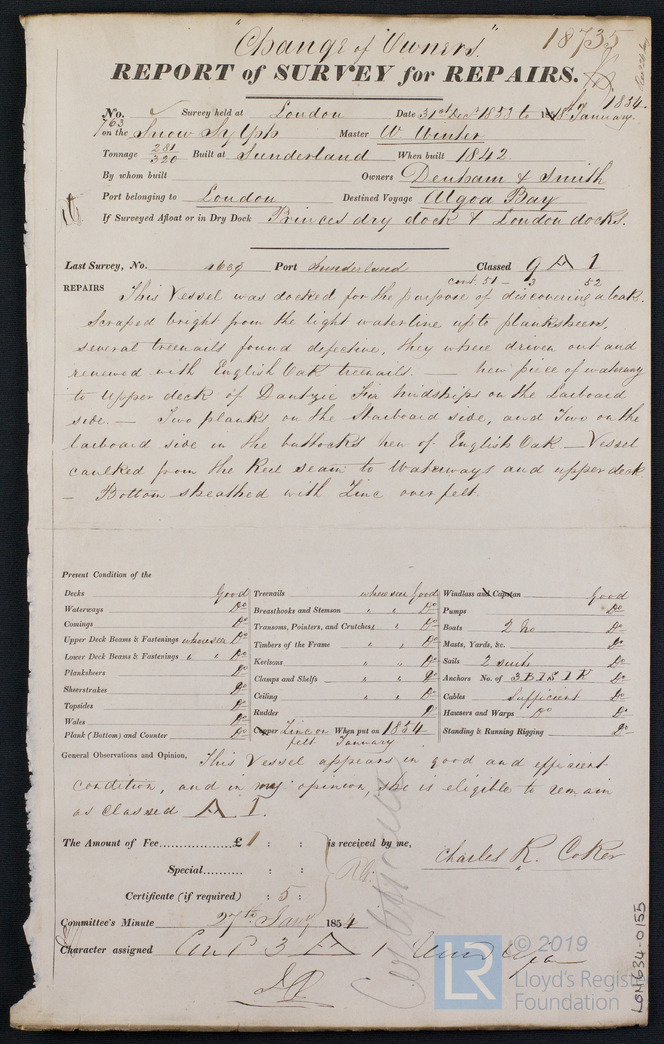 "Change of Owners"
18735
REPORT of SURVEY for REPAIRS.
No. 763 Survey held at London Date 31st Decr 1853 to 18th January 1854.
on the Snow Sylph Master W Winter
Tonnage 281 320 Built at Sunderland When built 1842.
By whom built Owners Denham & Smith
Port belonging to London Destined Voyage Algoa Bay
If Surveyed Afloat or in Dry Dock Princes dry dock & London docks.
Last Survey, No. 1609 Port Sunderland Classed 9 A 1
cont. 51 - 3 52
REPAIRS This Vessel was docked for the purpose of discovering a leak.
Scraped bright from the light waterline up to planksheers,
several treenails found defective, they where driven out and
renewed with English Oak treenails. — New piece of waterway
to upper deck of Dantzic Fir Midships on the Larboard
side. — Two planks on the Starboard side, and Two on the
larboard side in the buttocks new of English Oak — Vessel
caulked from the Keel seam to Waterways and upper deck
— Bottom sheathed with Zinc over felt.
Present Condition of the
Decks Good Treenails where seen Good Windlass and Capstan good
Waterways Do Breasthooks and Stemson " " Do Pumps Do
Comings Do Transoms, Pointers, and Crutches " " Do Boats 2 No Do
Upper Deck Beams & Fastenings where seen Do Timbers of the Frame " " Do Masts, Yards, &c. Do
Lower Deck Beams & Fastenings " " Do Keelsons " " Do Sails 2 suits Do
Planksheers Do Clamps and Shelfs " " Do Anchors No. of 3 B 1 S 1 K Do
Sheerstrakes Do Ceiling " " Do Cables Sufficient Do
Topsides Do Rudder Do Hawsers and Warps Do Do
Wales Do Copper Zinc on felt When put on 1854 January Standing & Running Rigging Do
Plank (Bottom) and Counter Do
General Observations and Opinion, This Vessel appears in good and efficient
condition, and in my opinion, she is eligible to remain
as classed A 1.
The Amount of Fee............£ 1 : : is received by me,
Special.......... : :
Charles R. Coker
Certificate (if required) : 5 :
Certificate
Committee's Minute 27th Jany 1854
Character assigned Cont 3 A 1
© 2019
LR Lloyd's Register
Foundation
LON634-0155